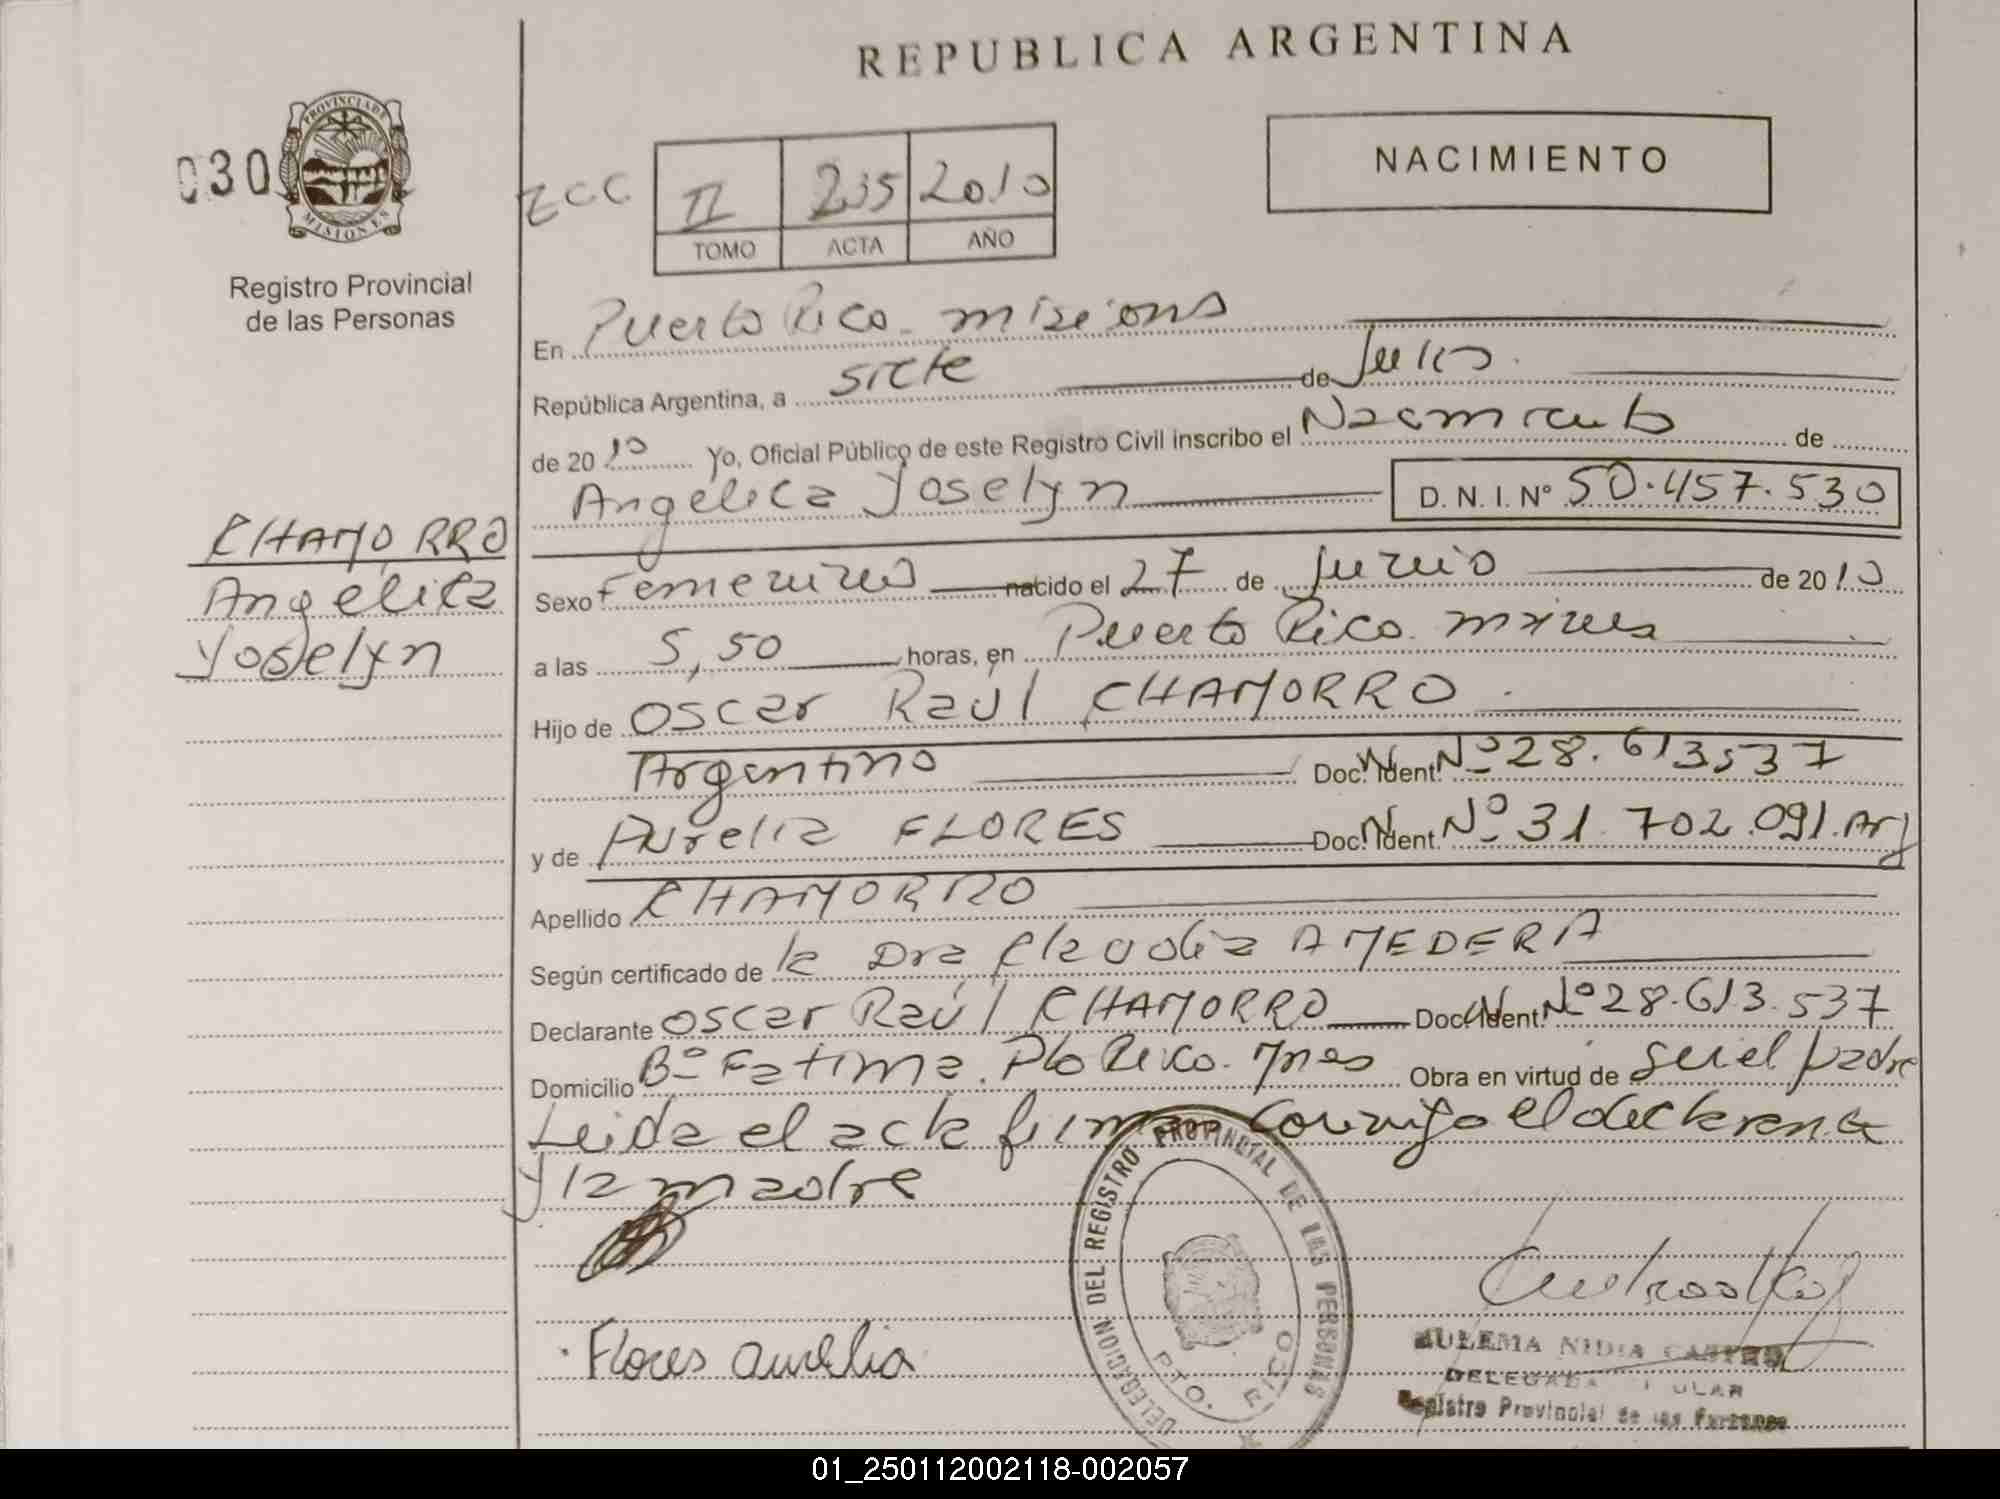 REPUBLICA ARGENTINA
030
PROVINCIA DE
MISIONES
Registro Provincial
de las Personas
ECC
II 235 2010
TOMO ACTA AÑO
NACIMIENTO
En Puerto Rico. misions
República Argentina, a siete de Julio.
de 2010 yo, Oficial Público de este Registro Civil inscribo el Nacimiento de
Angélica Yoselyn D. N. I. Nº 50.457.530
CHAMORRO
Angélica
Yoselyn
Sexo Femenino nacido el 27 de Junio de 2010
a las 5,50 horas, en Puerto Rico. misiones
Hijo de Oscar Raúl CHAMORRO
Argentino Doc. Ident. Nº 28.613537
y de Aurelia FLORES Doc. Ident. Nº 31.702.091. Arg
Apellido CHAMORRO
Según certificado de la Dra Claudia AMEDERA
Declarante Oscar Raúl CHAMORRO Doc. Ident. Nº 28.613.537
Domicilio Bº Fatima. Pto Rico. Mnes Obra en virtud de ser el padre
Leida el acta firman conmigo el declarante
y la madre
Flores aurelia
DELEGACION DEL REGISTRO PROVINCIAL DE LAS PERSONAS
PTO. RICO
ZULEMA NIDIA CASTRO
DELEGADA TITULAR
Registro Provincial de las Personas
01_250112002118-002057